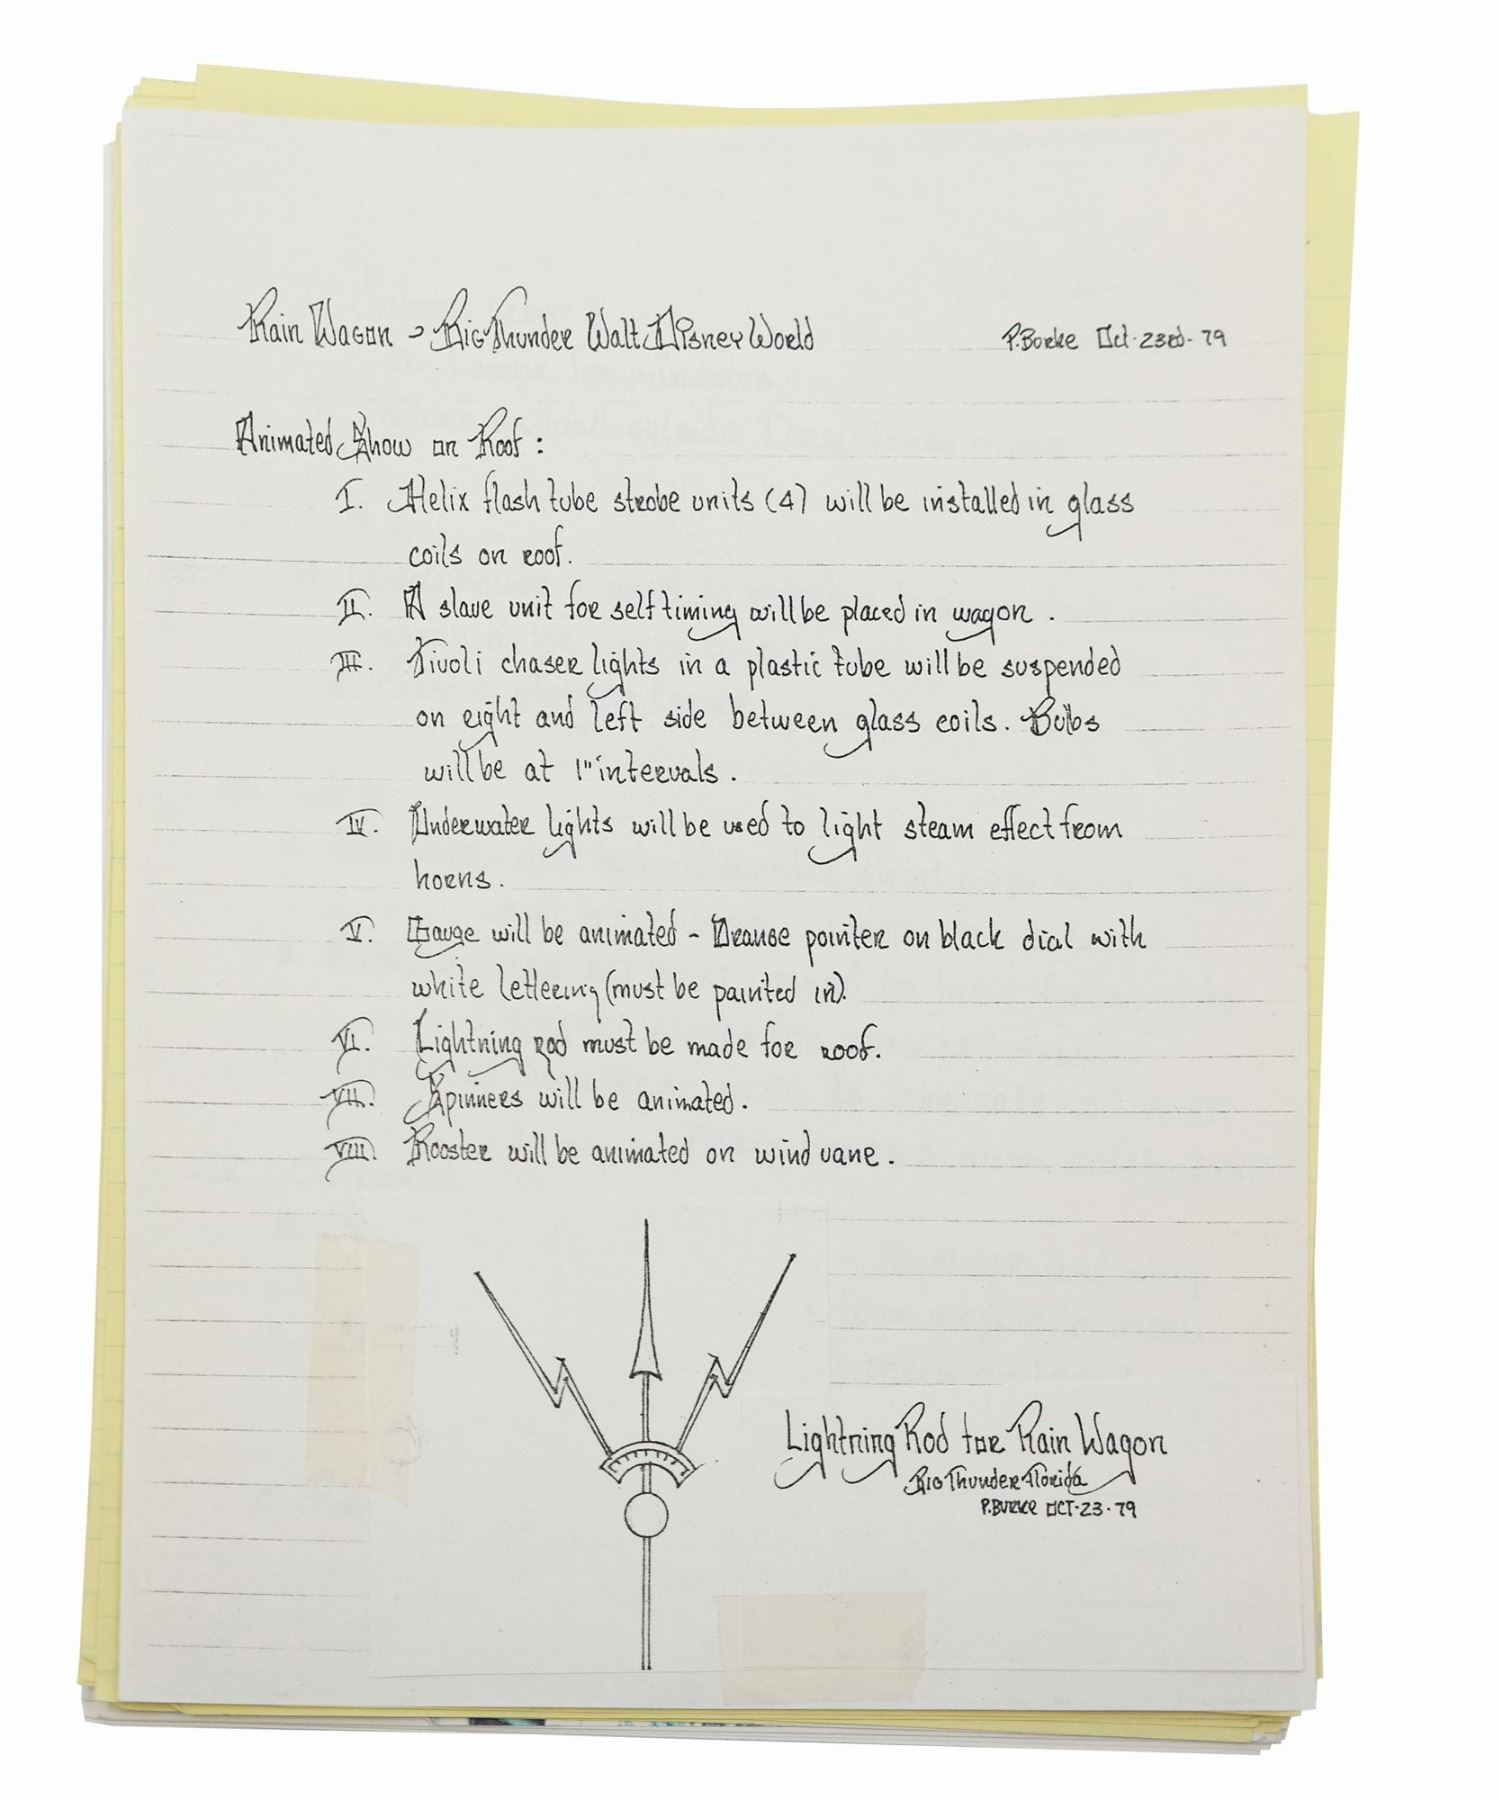 Rain Wagon - Big Thunder Walt Disney World
P. Burke Oct. 23rd. 79
Animated Show on Roof:
I. Helix flash tube strobe units (4) will be installed in glass
coils on roof.
II. A slave unit for self timing will be placed in wagon.
III. Tivoli chaser lights in a plastic tube will be suspended
on right and left side between glass coils. Bulbs
will be at 1" intervals.
IV. Underwater lights will be used to light steam effect from
horns.
V. Gauge will be animated - Orange pointer on black dial with
white lettering (must be painted in).
VI. Lightning rod must be made for roof.
VII. Spinners will be animated.
VIII. Rooster will be animated on wind vane.
Lightning Rod for Rain Wagon
Big Thunder Florida
P. Burke OCT-23-79